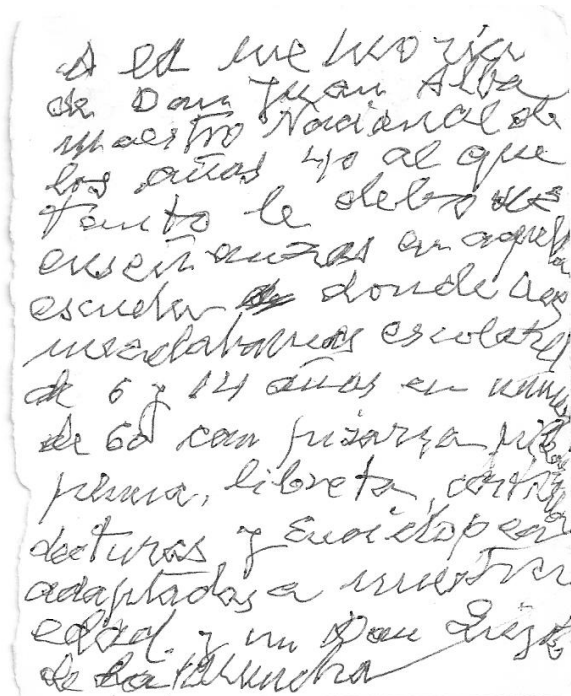 A la memoria
de Don Juan Alba
maestro Nacional de
los años 40 al que
tanto le debo sus
enseñanzas en aquella
escuela donde nos
mezclabamos escolares
de 6 y 14 años en
de 60 con pizarra
pluma, libreta,
lecturas y Enciclopedia
adaptadas a nuestra
edad y un Don Quijote
de la Mancha